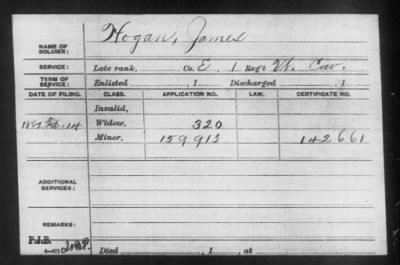 Hogan, James
NAME OF SOLDIER:
SERVICE: Late rank, Co. E, 1 Reg't Vt. Cav.
TERM OF SERVICE: Enlisted , 1 Discharged , 1
DATE OF FILING. CLASS. APPLICATION NO. LAW. CERTIFICATE NO.
Invalid,
Feb. 14 Widow, 320
Minor, 159 913 142 661
ADDITIONAL SERVICES:
REMARKS:
P.I.B.
Died , 1 , at